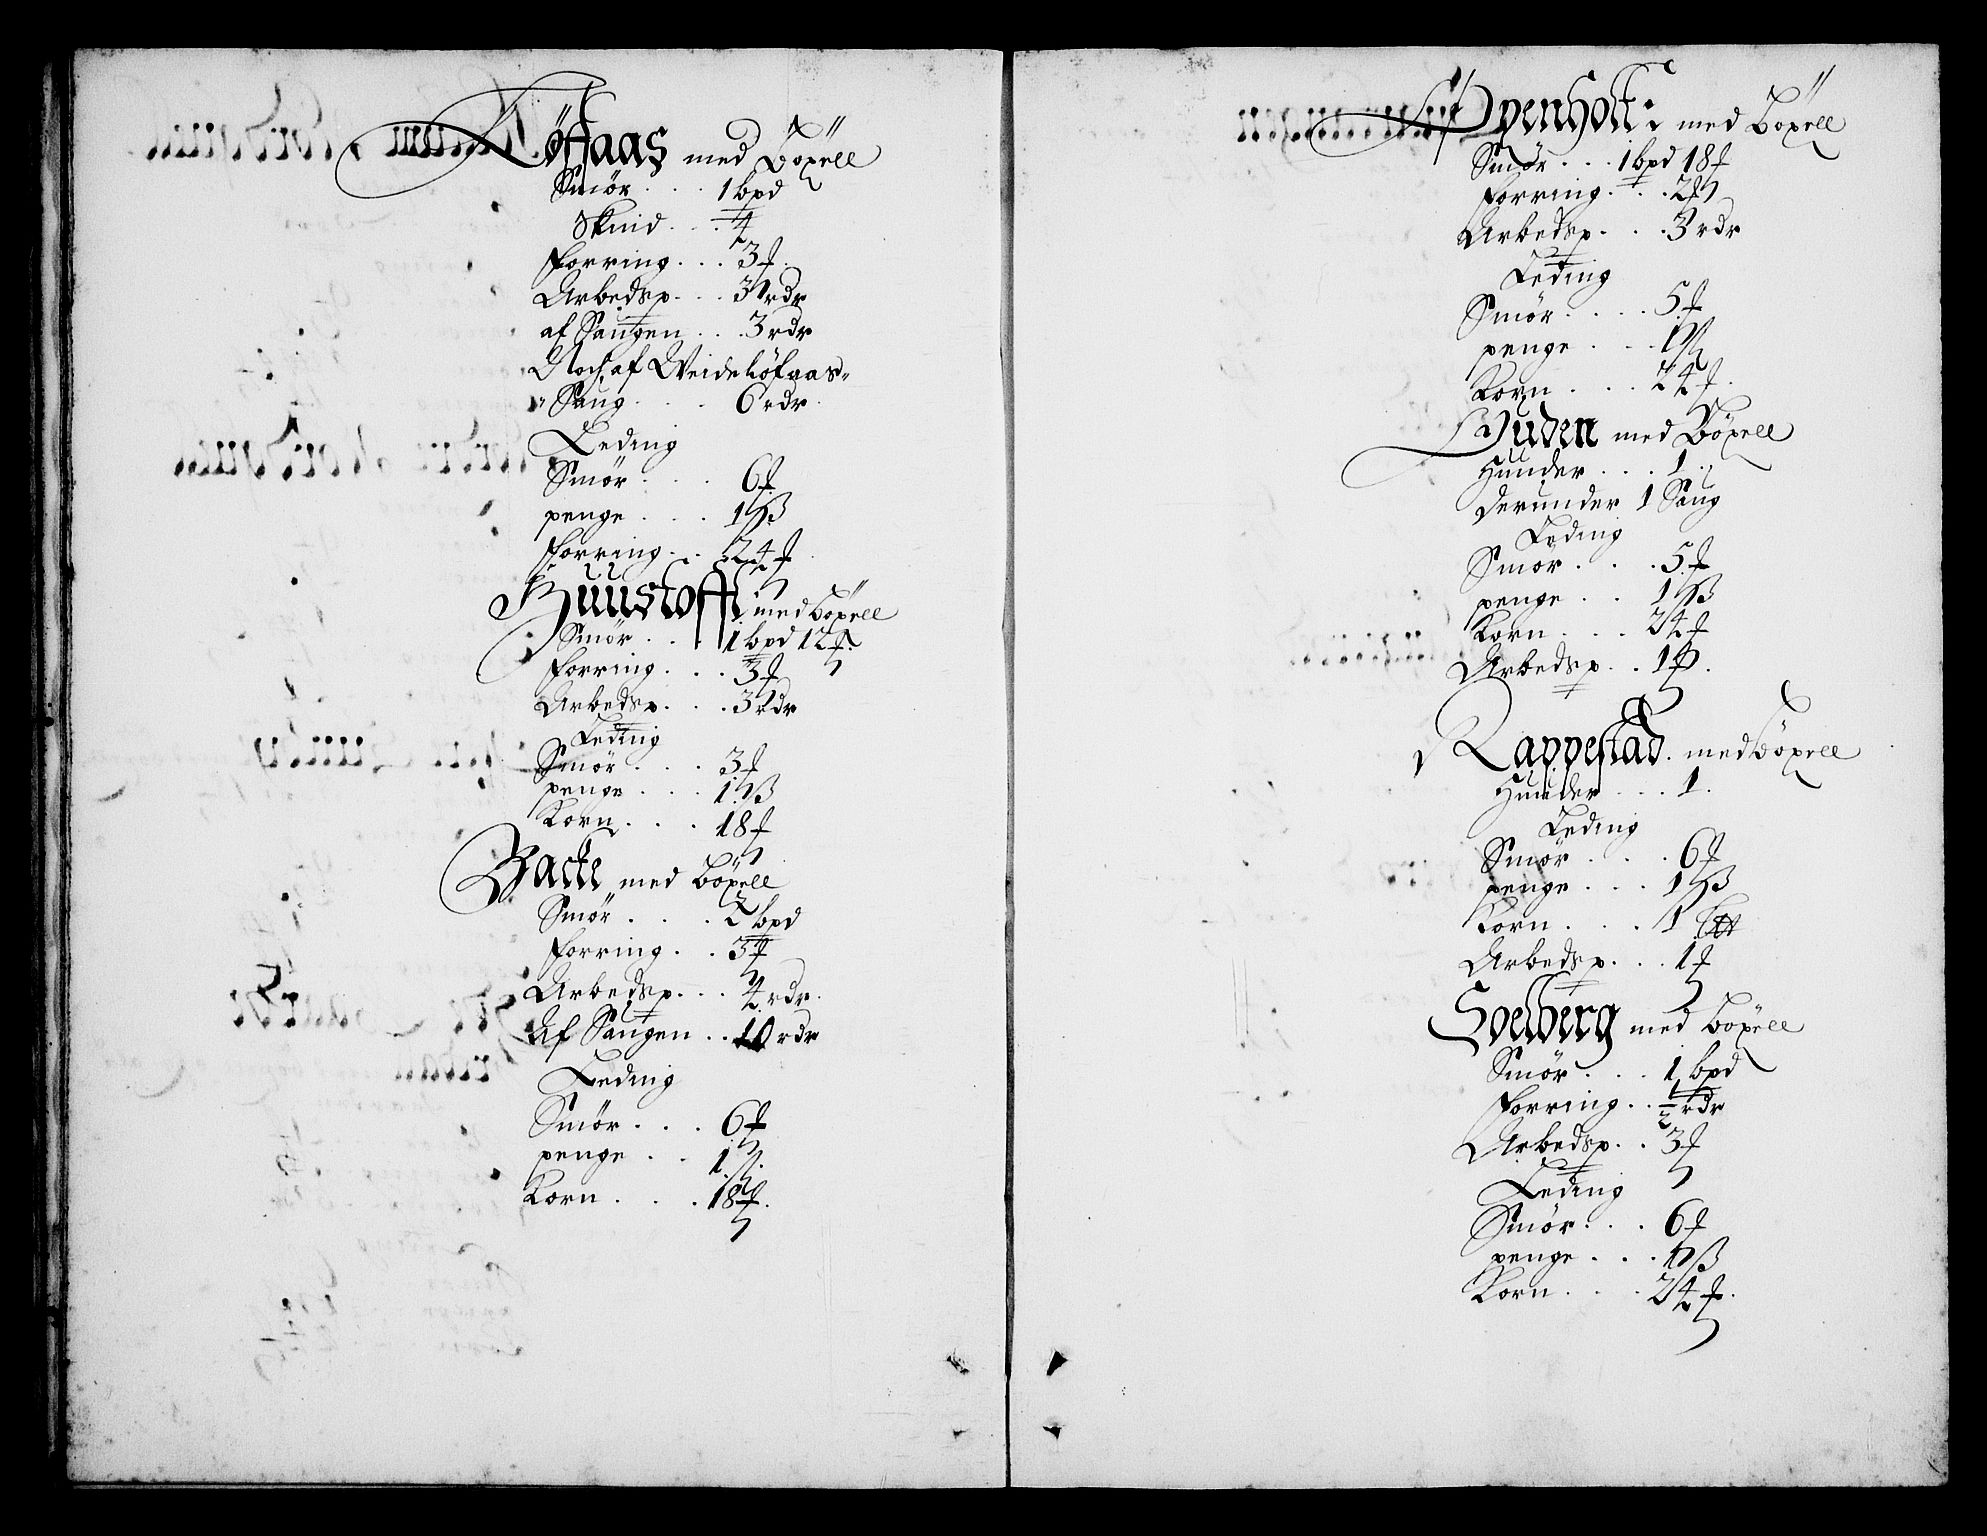 Löffaas med Böxell
Smör . . . 1 bpd
Skind . . . 4
forring . . . 3 f
Arbedsp . . . 3 rdr
af Saugen . . . 3 rdr
Noch af Weidelöfaas
Saug . . . 6 rdr
Leding
Smör . . . 6 f
penge . . . 1 ß
forring . . 24 f
Huustofft med böxell
Smör . . . 1 bpd 12 f
forring . . . 3 f
Arbedsp . . . 3 rdr
Leding
Smör . . . 3 f
penge . . . 1 ß
Korn . . . 18 f
Backe med Böxell
Smör . . . 2 bpd
forring . . 3 f
Arbedsp . . . 4 rdr
Af Saugen . . 10 rdr
Leding
Smör . . . 6 f
penge . . 1 ß
Korn . . . 18 f
Openholt med Böxell
Smör . . . 1 bpd 18 f
forring . . . 2 f
Arbedsp . . . 3 rdr
Leding
Smör . . . . 5 f
penge . . . 1 ß
Korn . . . 24 f
med Böxell
Hunder . . . 1
derunder 1 Saug
Leding
Smör . . . 5 f
penge . . 1 ß
Korn . . . 24 f
Arbedsp . . 1
Rappestad med böxell
Hunder . . . 1
Leding
Smör . . . 6 f
penge . . . 1 ß
Korn . . . 1
Arbedsp . . . 1 f
Soelberg med böxell
Smör . . . 1 bpd
forring . . ½ rdr
Arbedsp . . 3 f
Leding
Smör . . . 6 f
penge . . . 1 ß
Korn . . . 24 f